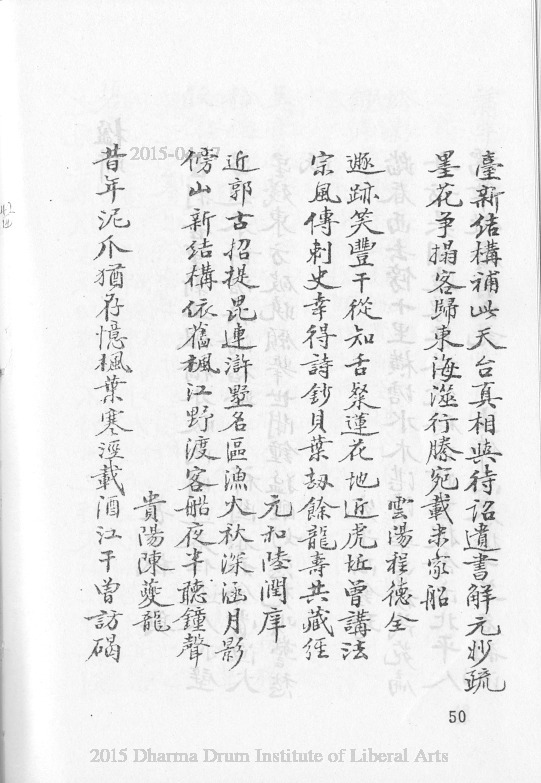 臺新結構補此天台真相與待詔遺書解元妙疏
墨花爭搨客歸東海澨行縢宛載米家船
雲陽程德全
遯跡笑豐干從知舌粲蓮花地近虎坵曾講法
宗風傳刺史幸得詩鈔貝葉劫餘龍壽共藏經
元和陸潤庠
近郭古招提毘連滸墅名區漁火秋深涵月影
傍山新結構依舊楓江野渡客船夜半聽鐘聲
貴陽陳夔龍
昔年泥爪猶存憶楓葉寒涇載酒江干曾訪碣
50
2015 Dharma Drum Institute of Liberal Arts